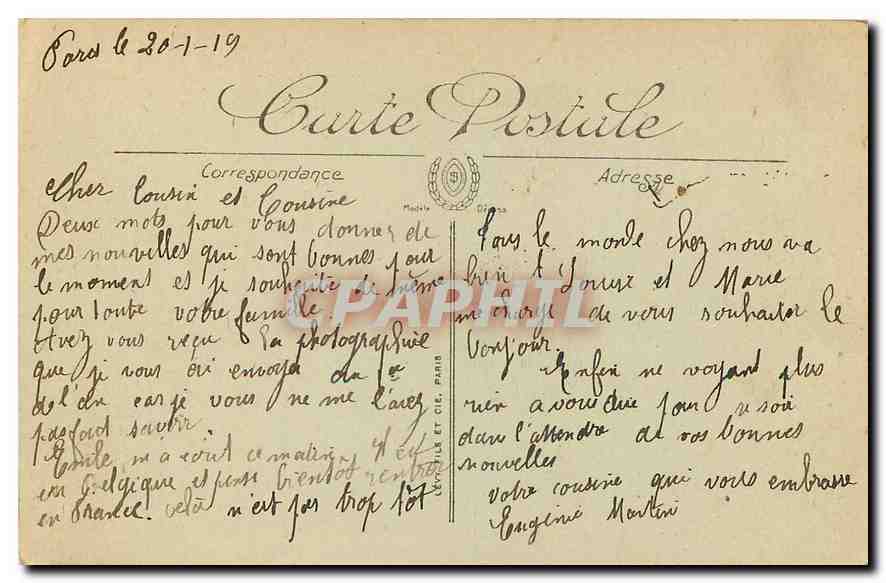 Paris le 20-1-19
Carte Postale
Correspondance
Adresse
Modèle Déposé
Cher Cousin et Cousine
Deux mots pour vous donner de
mes nouvelles qui sont bonnes pour
le moment et je souhaite de même
pour toute votre famille.
Avez vous reçu la photographie
que je vous ai envoyé au 1er
de l'an car je vous ne me l'avez
pas fait savoir
Emile m'a écrit ce matin il est
en Belgique et pense bientôt rentrer
en France. cela n'est pas trop tôt
LEVY FILS ET CIE, PARIS
Tous le monde chez nous va
bien Louise et Marie
me charge de vous souhaiter le
bonjour.
Enfin ne voyant plus
rien a vous dire pour ce soir
dans l'attendre de vos bonnes
nouvelles
votre cousine qui vous embrasse
Eugénie Martin
CPAPHIL